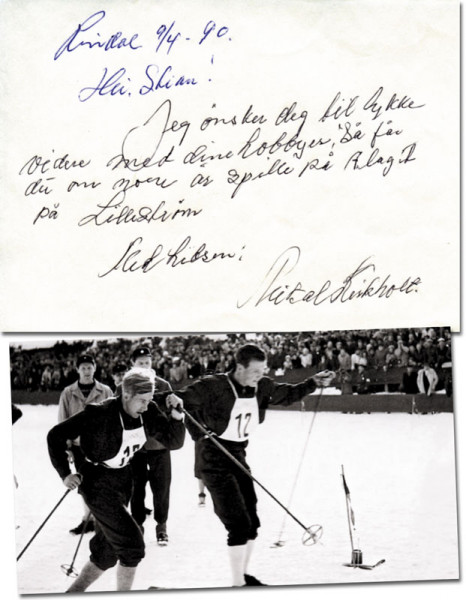 Rindal 9/4-90.
Hei, Stian!
Jeg ønsker deg til lykke
videre med dine hobbyer, Så får
du om noen år spille på Alaget
på Lillestrøm
Med hilsen:
Mikal Kirkholt.
12